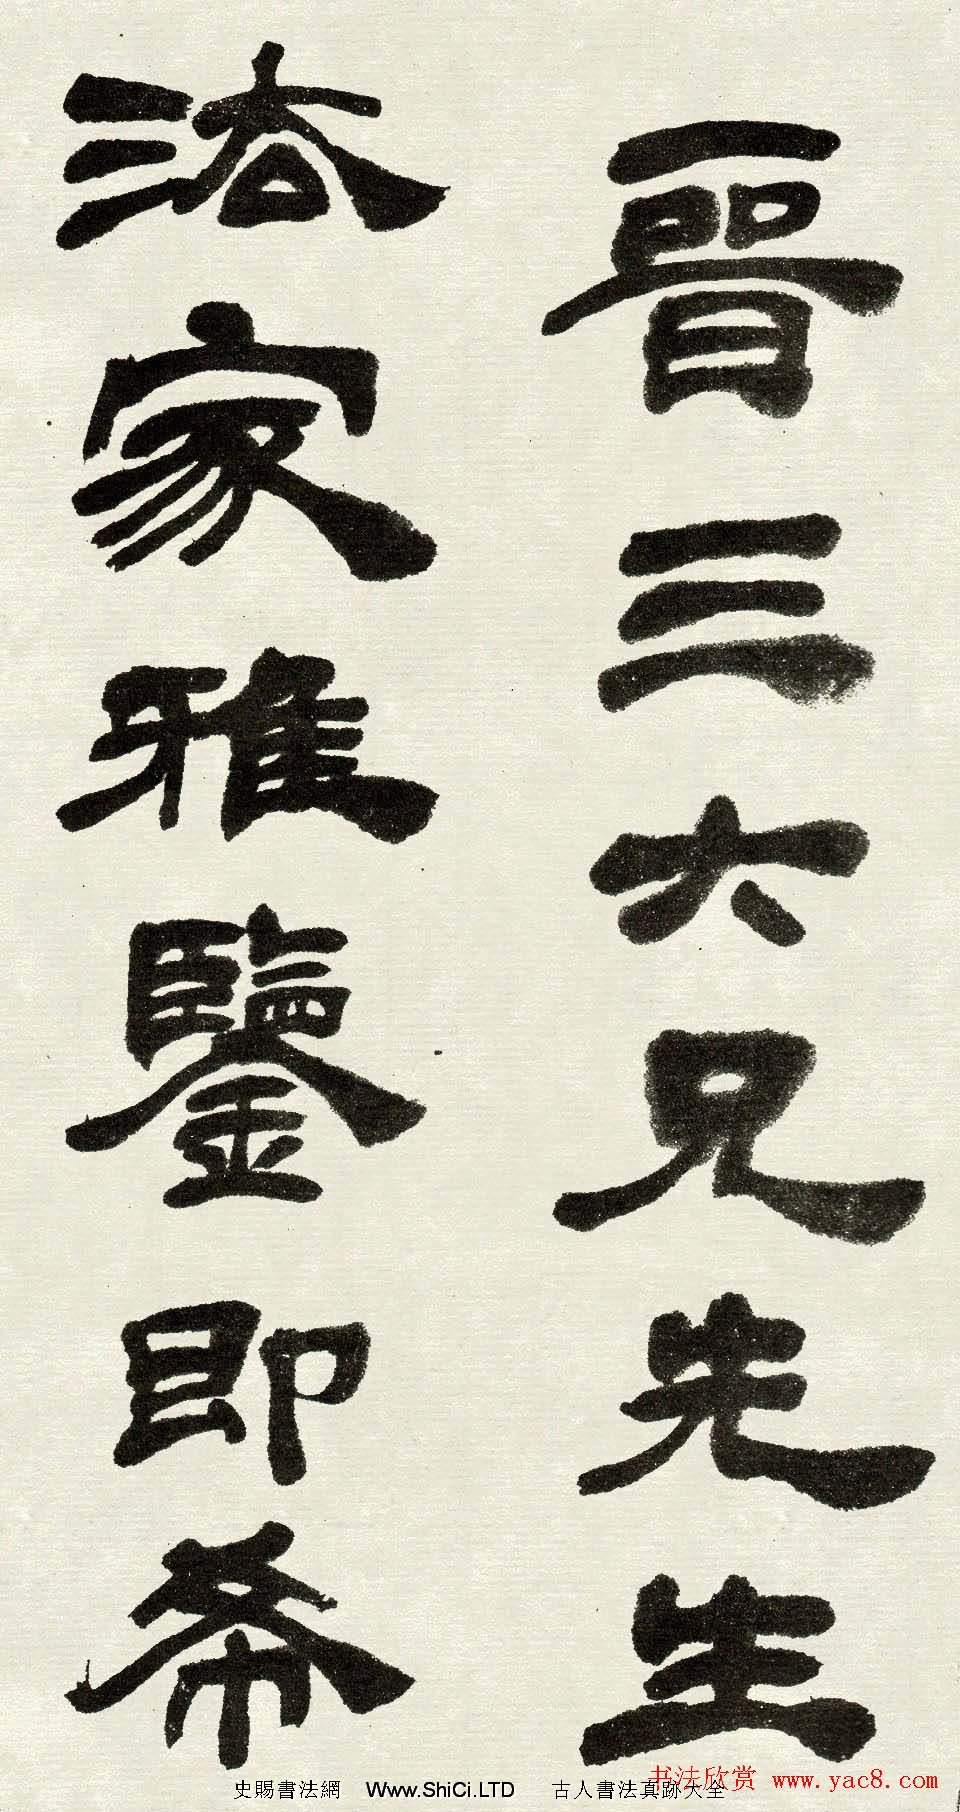 晉三六兄先生
法家雅鑒即希
史賜書法網 Www.ShiCi.LTD 古人書法真跡大全
书法欣赏 www.yac8.com